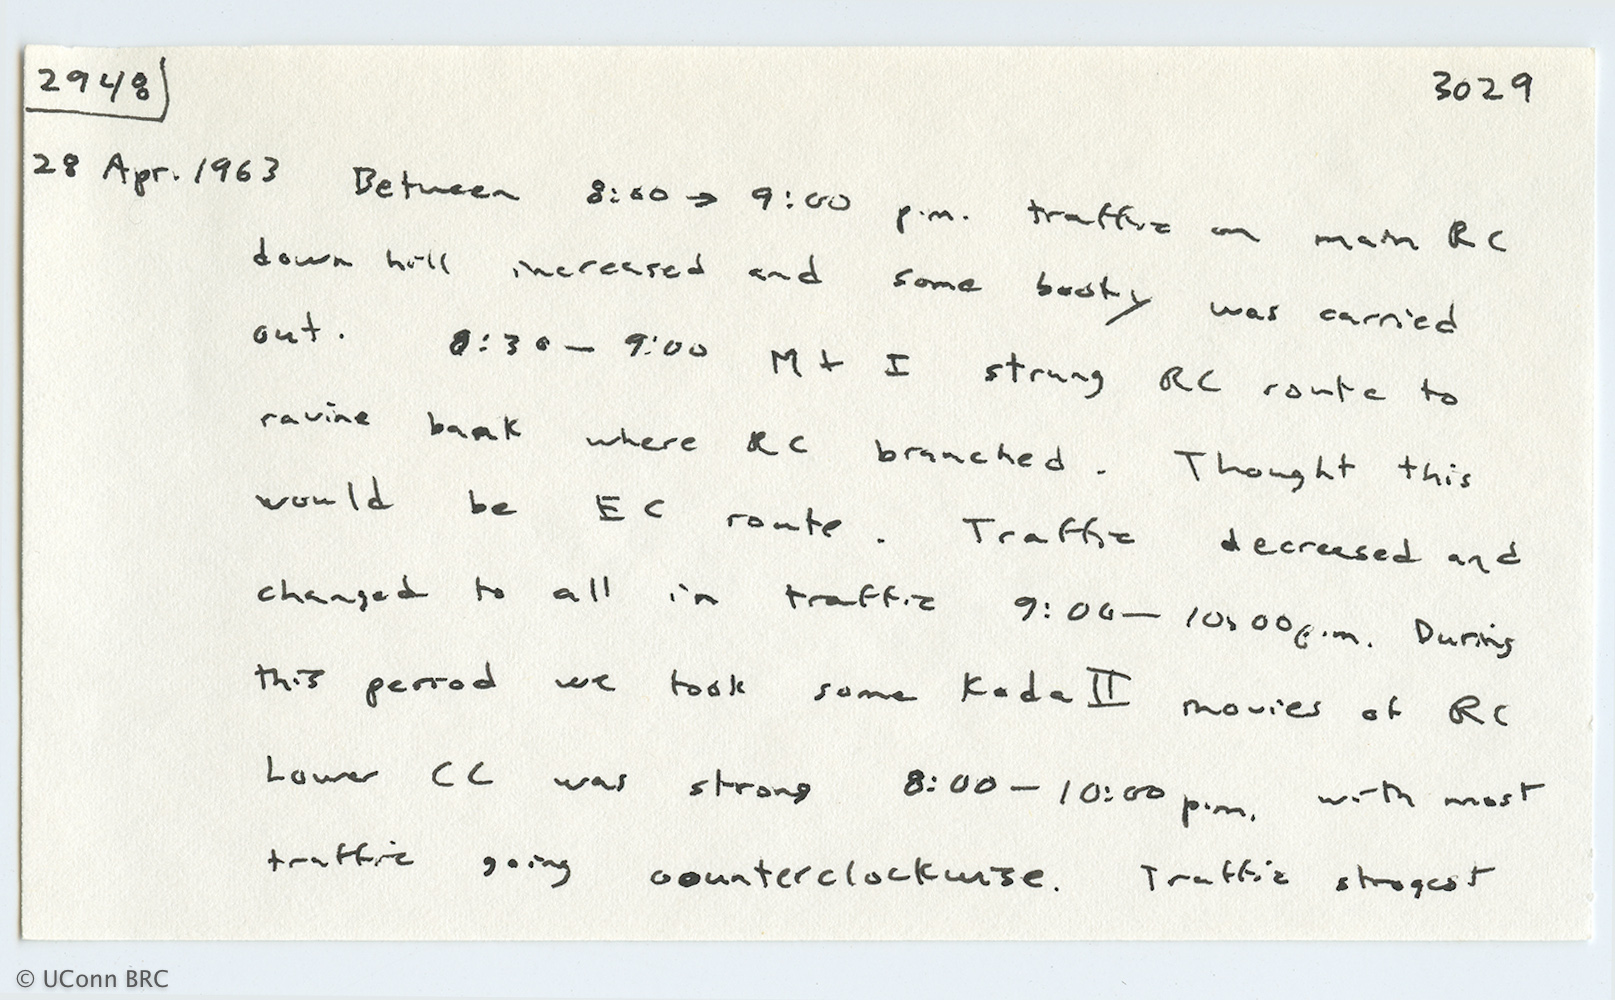 2948
3029
28 Apr. 1963 Between 8:00 → 9:00 p.m. traffic on main RC
down hill increased and some booty was carried
out. 8:30 — 9:00 M + I strung RC route to
ravine bank where RC branched. Thought this
would be EC route. Traffic decreased and
changed to all in traffic 9:00 — 10:00 p.m. During
this period we took some Koda II movies of RC
Lower CC was strong 8:00 — 10:00 p.m. with most
traffic going counterclockwise. Traffic strogest
© UConn BRC